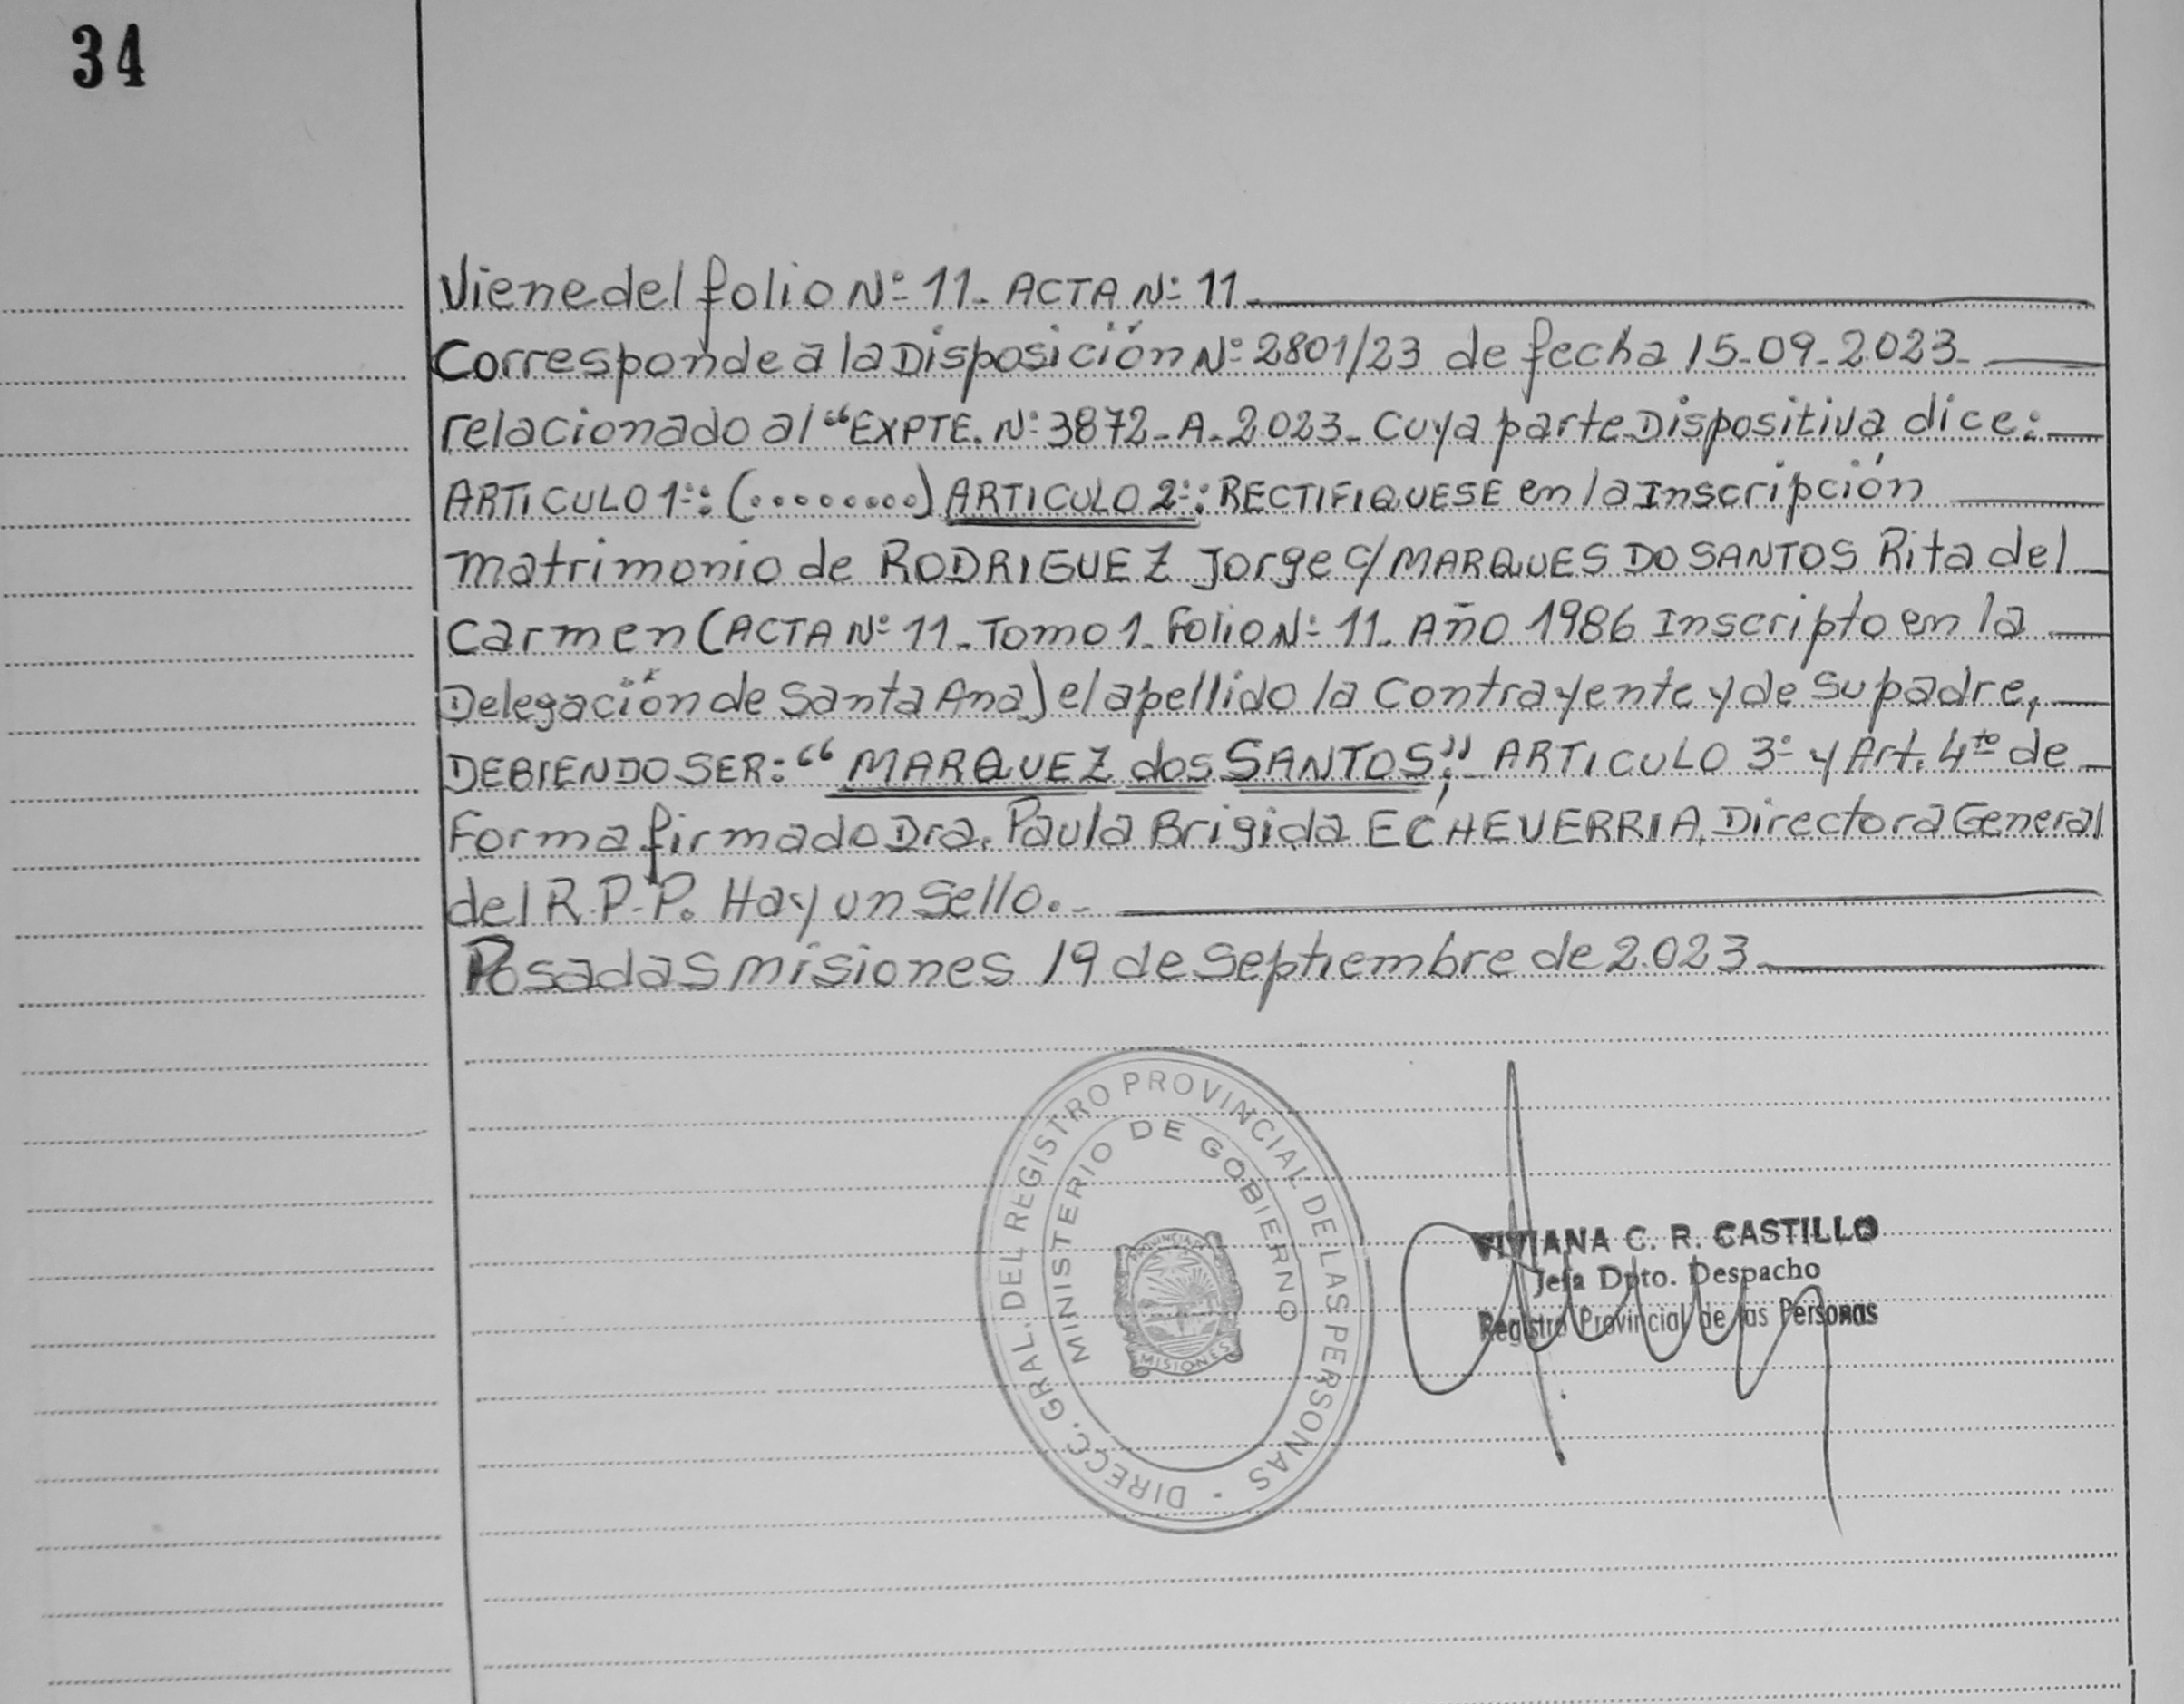 34
Viene del folio Nº 11. ACTA Nº 11
Corresponde a la Disposición Nº 2801/23 de fecha 15-09-2023
relacionado al "EXPTE. Nº 3872-A-2023- Cuya parte Dispositiva dice:
ARTICULO 1º: (........) ARTICULO 2º: RECTIFIQUESE en la Inscripción
matrimonio de RODRIGUEZ Jorge c/ MARQUES DO SANTOS Rita del
Carmen (ACTA Nº 11- Tomo 1- Folio Nº 11- Año 1986 Inscripto en la
Delegación de Santa Ana) el apellido la Contrayente y de su padre,
DEBIENDO SER: "MARQUEZ dos SANTOS",- ARTICULO 3º y Art. 4to de
Forma firmado Dra. Paula Brigida ECHEVERRIA, Directora General
del R.P.P. Hay un Sello.-
Posadas misiones 19 de Septiembre de 2023
DIRECC. GRAL. DEL REGISTRO PROVINCIAL DE LAS PERSONAS
MINISTERIO DE GOBIERNO
PROVINCIA DE
MISIONES
VIVIANA C. R. CASTILLO
Jefa Dpto. Despacho
Registro Provincial de las Personas